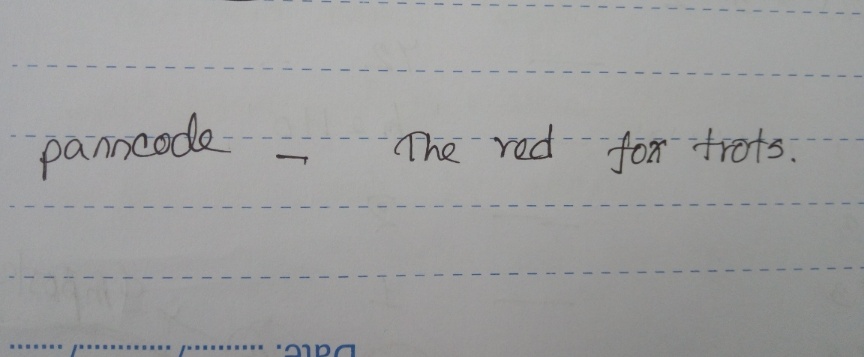 passcode - The red fox trots.
Date: